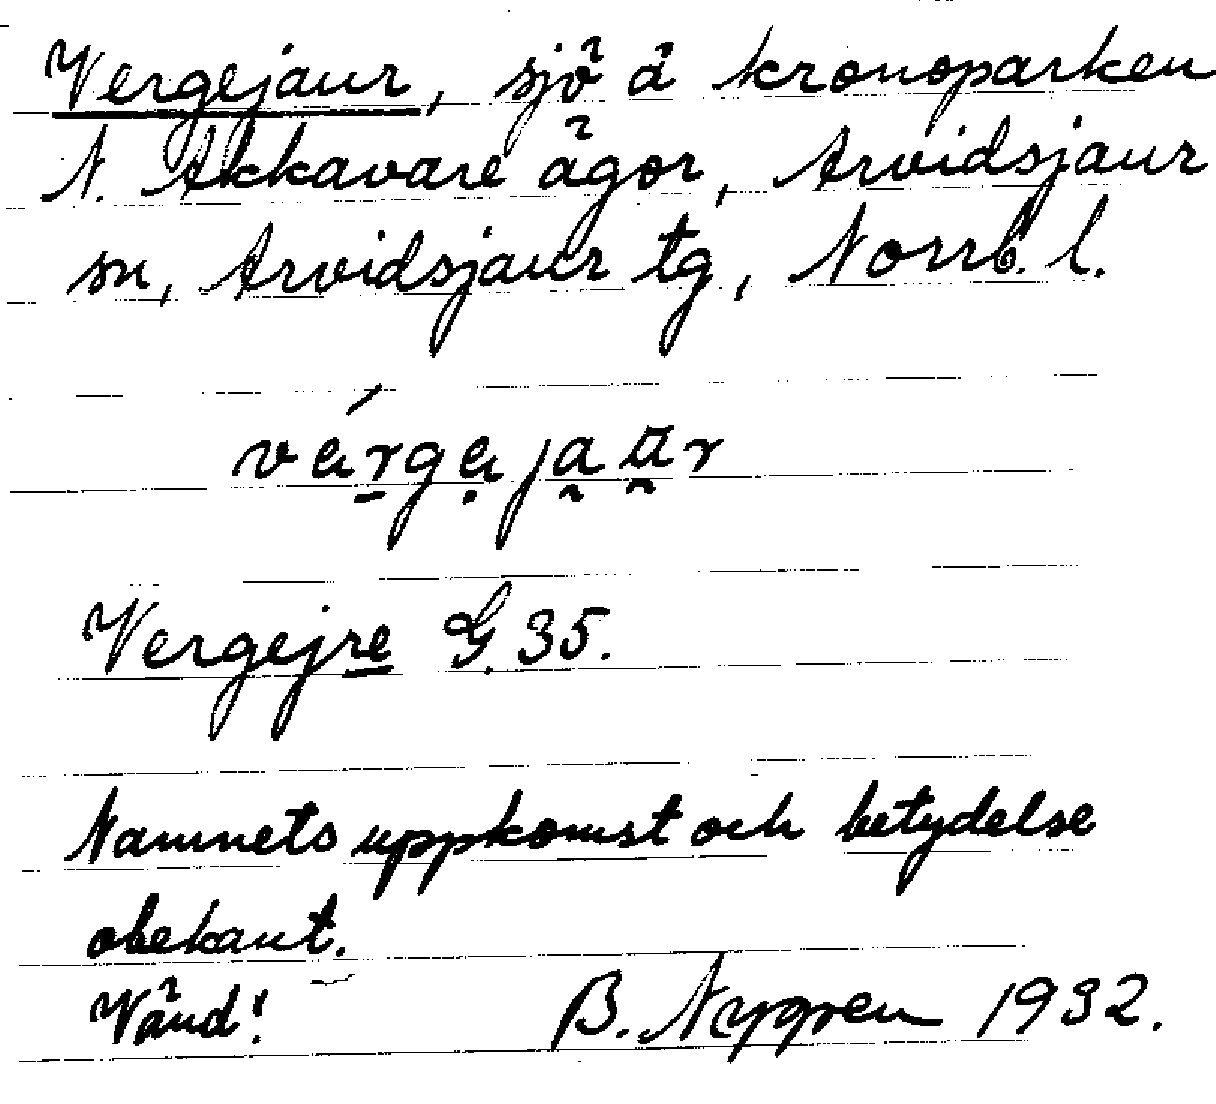 Vergejaur, sjö å kronoparken
N. Akkavare ägor, Arvidsjaur
sn, Arvidsjaur tg, Norrb. l.
Vergejre G. 35.
Namnets uppkomst och betydelse
obekant.
Vänd! B. Nygren 1932.